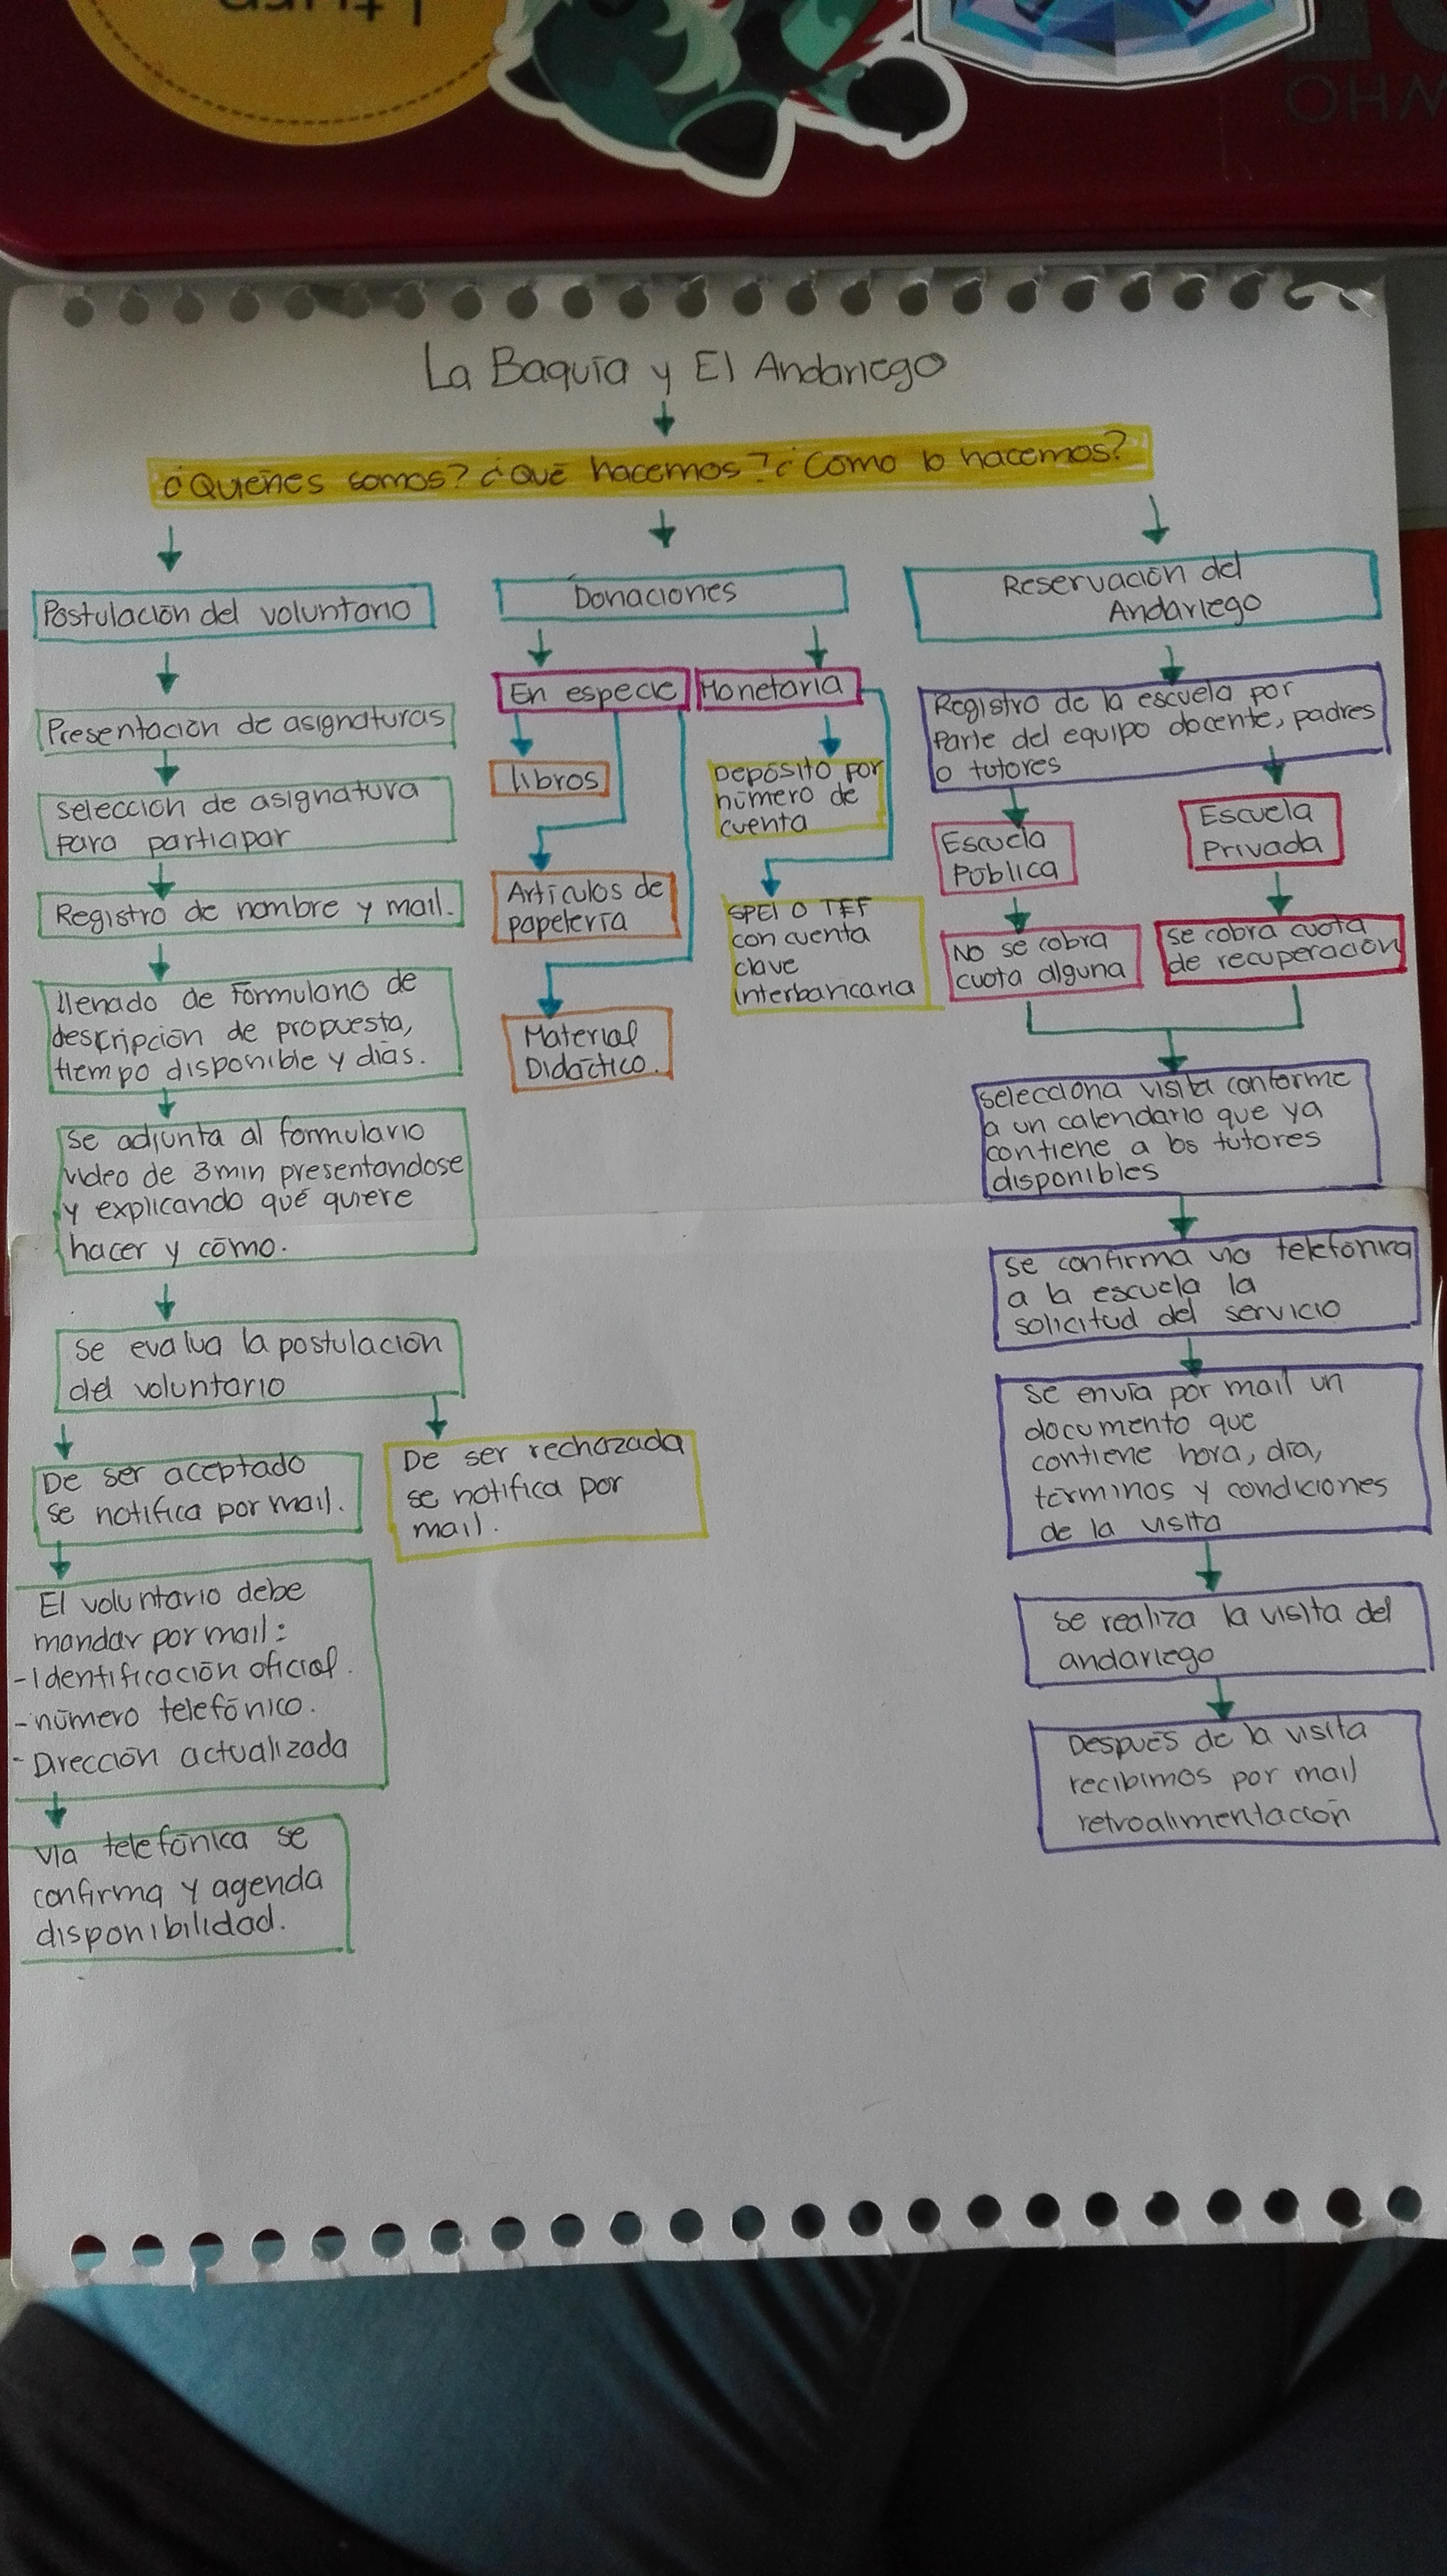 La Baquía y El Andariego
¿Quiénes somos? ¿Qué hacemos? ¿Cómo lo hacemos?
Postulación del voluntario
Presentación de asignaturas
selección de asignatura
para participar
Registro de nombre y mail.
llenado de Formulario de
descripción de propuesta,
tiempo disponible y días.
se adjunta al formulario
video de 3min presentandose
y explicando qué quiere
hacer y cómo.
se evalua la postulación
del voluntario
De ser aceptado
se notifica por mail.
De ser rechazada
se notifica por
mail.
El voluntario debe
mandar por mail:
-Identificación oficial.
-número telefónico.
-Dirección actualizada
vía telefónica se
confirma y agenda
disponibilidad.
Donaciones
En especie
libros
Artículos de
papelería
Material
Didáctico.
Monetaria
Depósito por
número de
cuenta
SPEI O TEF
con cuenta
clave
interbancaria
Reservación del
Andariego
Registro de la escuela por
parte del equipo docente, padres
o tutores
Escuela
Pública
No se cobra
cuota alguna
Escuela
Privada
se cobra cuota
de recuperación
selecciona visita conforme
a un calendario que ya
contiene a los tutores
disponibles
se confirma vía telefónica
a la escuela la
solicitud del servicio
se envía por mail un
documento que
contiene hora, día,
términos y condiciones
de la visita
se realiza la visita del
andariego
Después de la visita
recibimos por mail
retroalimentación